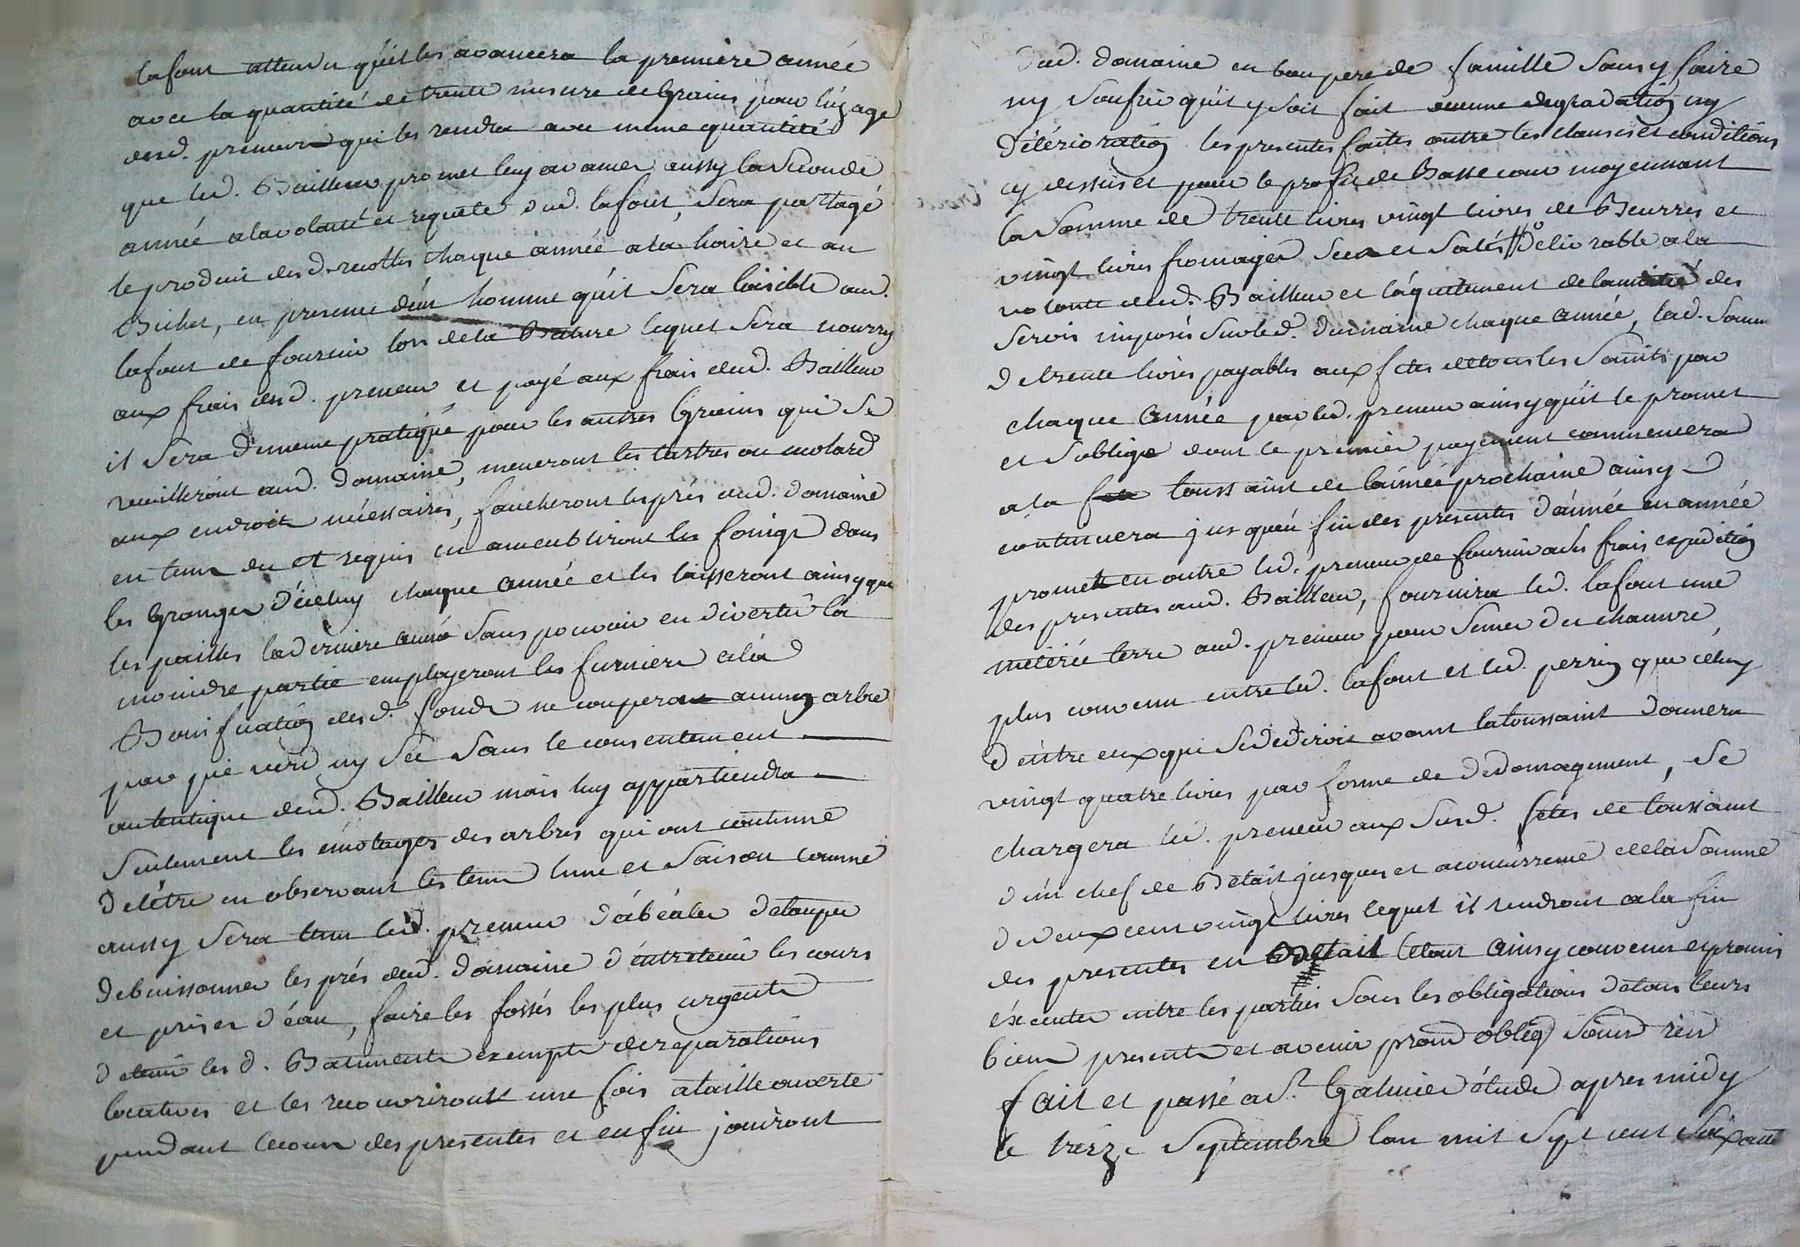 lafont attendu qu'il les avancera la premiere année
avec la quantité de trente mesure de grains pour l'uzage
desd. preneurs qui les rendra avec meme quantité
que led. Bailleur promet luy avancer aussy la seconde
année a la volonté et requete dud. lafont, Sera partagé
le produit desd. recoltes chaque année a la hoire et au
Bichet, en presence d'éun homme qu'il Sera loisible aud.
lafont de fournir lors de la Bature lequel Sera nourry
aux frais desd. preneur et payé aux frais dud. Bailleur
il Sera de meme pratiqué pour les autres grains qui Se
recuilleront aud. domaine, meneront les tertres au molard
aux endroits nécessaires, faucheront les prés dud. domaine
en tems du et requis en ameubliront les foings dans
les granges d'icelluy chaque année et les laisseront ainsy que
les pailles la derniere année Sans pouvoir en divertir la
moindre partie employeront les fumiere a la
Bonification desd. fonds ne couperont aucung arbre
par pié verd ny Sec Sans le consentement
autentique dud. Bailleur mais luy appartiendra
Seulement les émotages des arbres qui ont coutume
de létre en observant les tems lune et Saison comme
aussy Sera tenu led. preneur d'abéaler detouper
debuissonner les prés dud. domaine d'éntretenir les cours
et prises d'éau, faire les fossés les plus urgents
detenir les d. Batiments exempts de reparations
locatives et les recouvriront une fois a taille ouverte
pendant le cour des presentes et enfin jouiront
dud. domaine en bon pere de famille Sans y faire
ny Soufrir qu'il y Soit fait aucune degradation ny
détérioration les presentes faites outre les clauses et conditions
cy dessus et pour le profit de Basse cour moyennant
la Somme de trente livres vingt livres de Beurres et
vingt livres fromages Secs et Salés délivrable a la
volonté dud. Bailleur et l'áquitement de la moitié des
Servis imposés Sur led. domaine chaque année, lad. Somme
de trente livres payables aux fetes de tous les Saints par
chaque année par led. preneur ainsy qu'il le promet
et S'oblige dont le premier payement commencera
a la toussaint de l'année prochaine ainsy
continuera jusqu'en fin des presentes d'année en année
promet en outre led. preneur de fournir a Ses frais expedition
des presentes aud. Bailleur, fournira led. lafont une
métérée terre aud. preneur pour Semer du chanvre,
plus convenu entre led. lafont et led. perring que celuy
d'éntre eux qui Se dediroit avant la toussaint donnera
vingt quatre livres par forme de dedomagement, Se
chargera led. preneur aux Susd. fetes de toussaint
d'ún chef de Betail jusques et a concurrence de la Somme
de deux cent vingt livres lequel il rendront a la fin
des presentes en Betail le tout ainsy convenu et promis
éxécuter entre les parties Sous les obligations de tous leurs
biens presents et avenir prom oblig Soum ren
fait et passé a St. Galmier étude apres midy
le treize Septembre l'an mil Sept cent Soixante